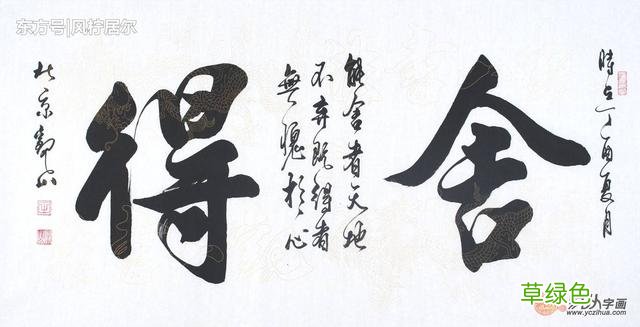 东方号|风柠居尔
時在丁酉夏月
舍
能舍者天地
不弃既得者
無愧於心
得
北京觀山
草绿色
字画
www.yczihua.com